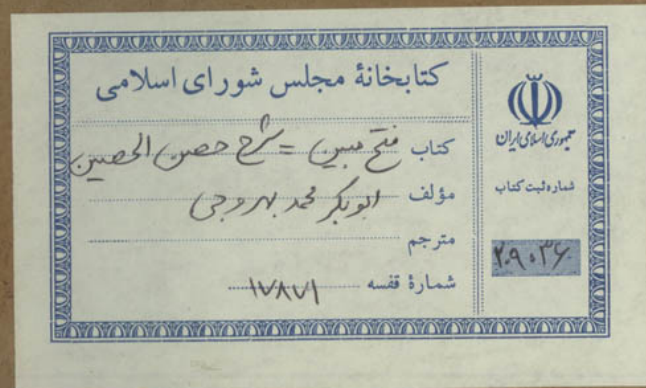 کتابخانهٔ مجلس شورای اسلامی
کتاب فتح مبین = شرح حصن الحصین
مؤلف ابوبکر محمد بهروجی
مترجم
شمارهٔ قفسه ۱۷۸۷۱
جمهوری اسلامی ایران
شماره ثبت کتاب
۲۰۹۰۳۶